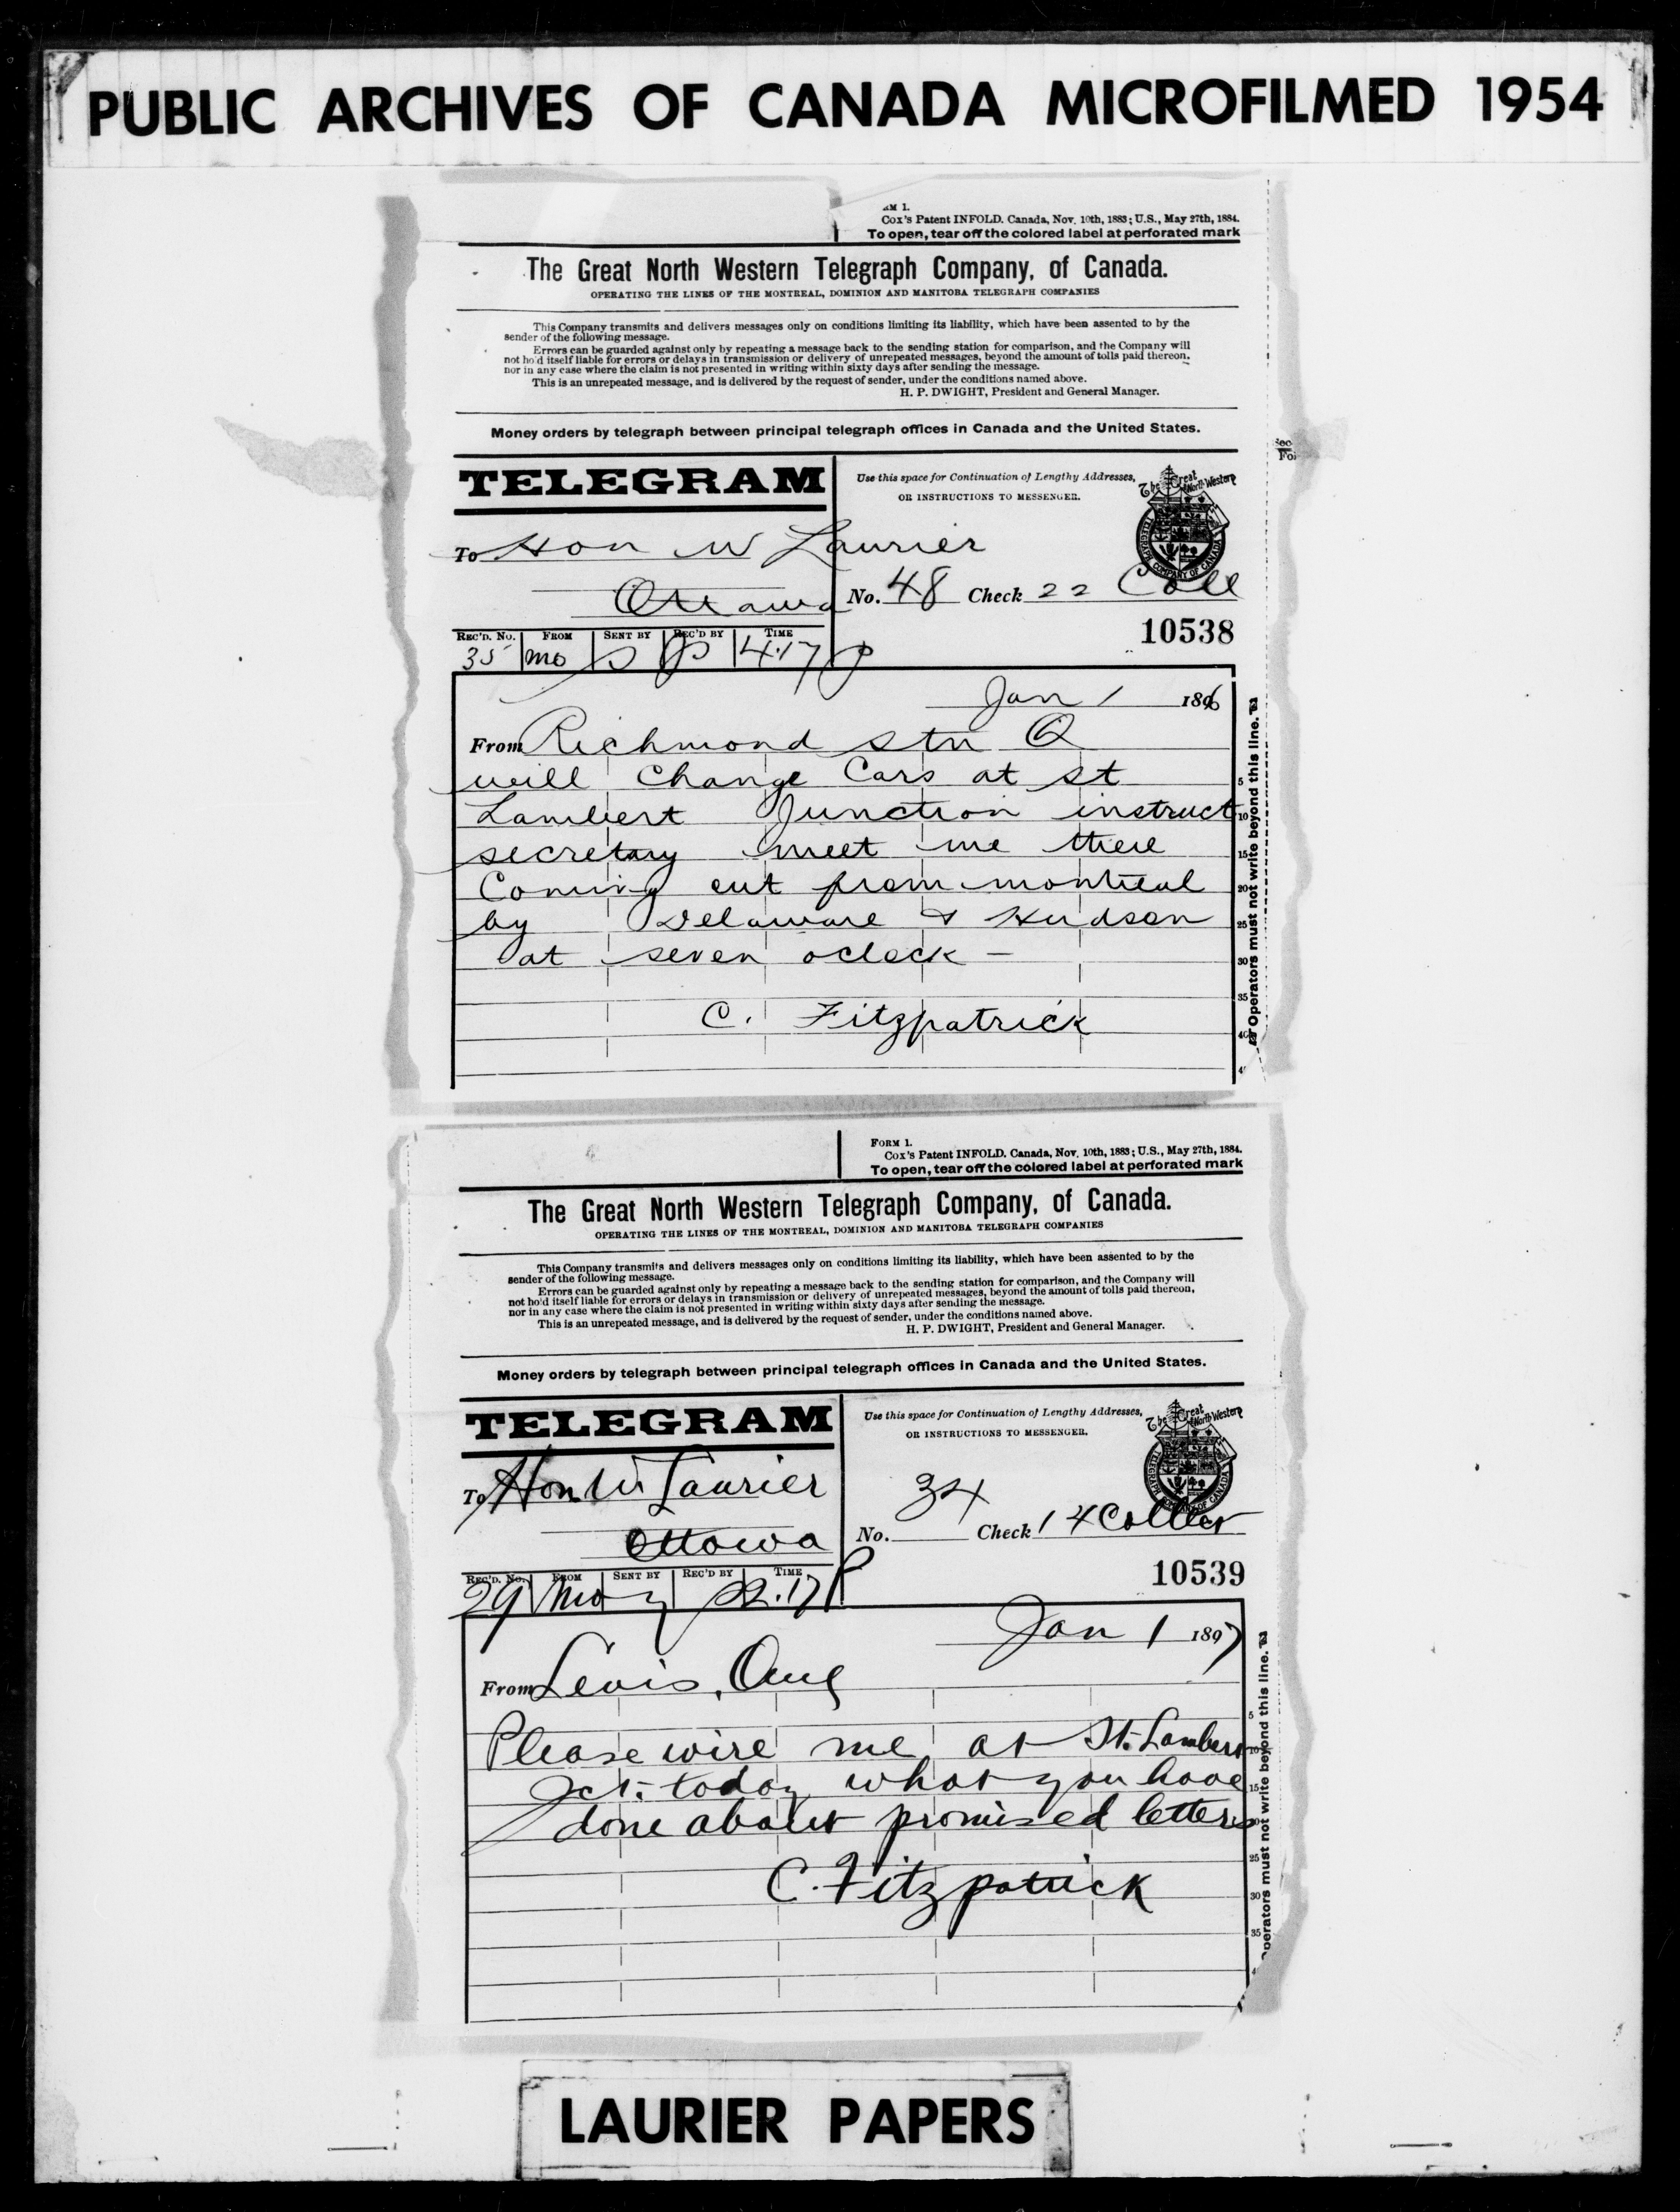 PUBLIC ARCHIVES OF CANADA MICROFILMED 1954
1.
Cox's Patent INFOLD. Canada, Nov. 10th, 1883; U.S., May 27th, 1884.
To open, tear off the colored label at perforated mark
The Great North Western Telegraph Company, of Canada.
OPERATING THE LINES OF THE MONTREAL, DOMINION AND MANITOBA TELEGRAPH COMPANIES
This Company transmits and delivers messages only on conditions limiting its liability, which have been assented to by the
sender of the following message.
Errors can be guarded against only by repeating a message back to the sending station for comparison, and the Company will
not hold itself liable for errors or delays in transmission or delivery of unrepeated messages, beyond the amount of tolls paid thereon,
nor in any case where the claim is not presented in writing within sixty days after sending the message.
This is an unrepeated message, and is delivered by the request of sender, under the conditions named above.
H. P. DWIGHT, President and General Manager.
Money orders by telegraph between principal telegraph offices in Canada and the United States.
TELEGRAM
Use this space for Continuation of Lengthy Addresses,
OR INSTRUCTIONS TO MESSENGER.
The Great North Western
TELEGRAPH COMPANY OF CANADA
To Hon W Laurier
Ottawa
No. 48 Check 22 Coll
10538
REC'D. No. FROM SENT BY REC'D BY TIME
35 mo 4.17 p
Jan 1 1896
From Richmond stn Q
will Change Cars at st
Lambert Junction instruct
secretary meet me there
Coming out from montreal
by Delaware & Hudson
at seven oclock —
C. Fitzpatrick
Operators must not write beyond this line.
5
10
15
20
25
30
35
40
FORM 1.
Cox's Patent INFOLD. Canada, Nov. 10th, 1883; U.S., May 27th, 1884.
To open, tear off the colored label at perforated mark
The Great North Western Telegraph Company, of Canada.
OPERATING THE LINES OF THE MONTREAL, DOMINION AND MANITOBA TELEGRAPH COMPANIES
This Company transmits and delivers messages only on conditions limiting its liability, which have been assented to by the
sender of the following message.
Errors can be guarded against only by repeating a message back to the sending station for comparison, and the Company will
not hold itself liable for errors or delays in transmission or delivery of unrepeated messages, beyond the amount of tolls paid thereon,
nor in any case where the claim is not presented in writing within sixty days after sending the message.
This is an unrepeated message, and is delivered by the request of sender, under the conditions named above.
H. P. DWIGHT, President and General Manager.
Money orders by telegraph between principal telegraph offices in Canada and the United States.
TELEGRAM
Use this space for Continuation of Lengthy Addresses,
OR INSTRUCTIONS TO MESSENGER.
The Great North Western
TELEGRAPH COMPANY OF CANADA
To Hon. W Laurier
Ottawa
34
No. Check 14 Collect
10539
REC'D. No. FROM SENT BY REC'D BY TIME
29 Mo 2.17 P
Jan 1 1897
From Levis, Que
Please wire me at St. Lambert
Jct. today what you have
done about promised letters
C. Fitzpatrick
Operators must not write beyond this line.
5
10
15
20
25
30
35
LAURIER PAPERS